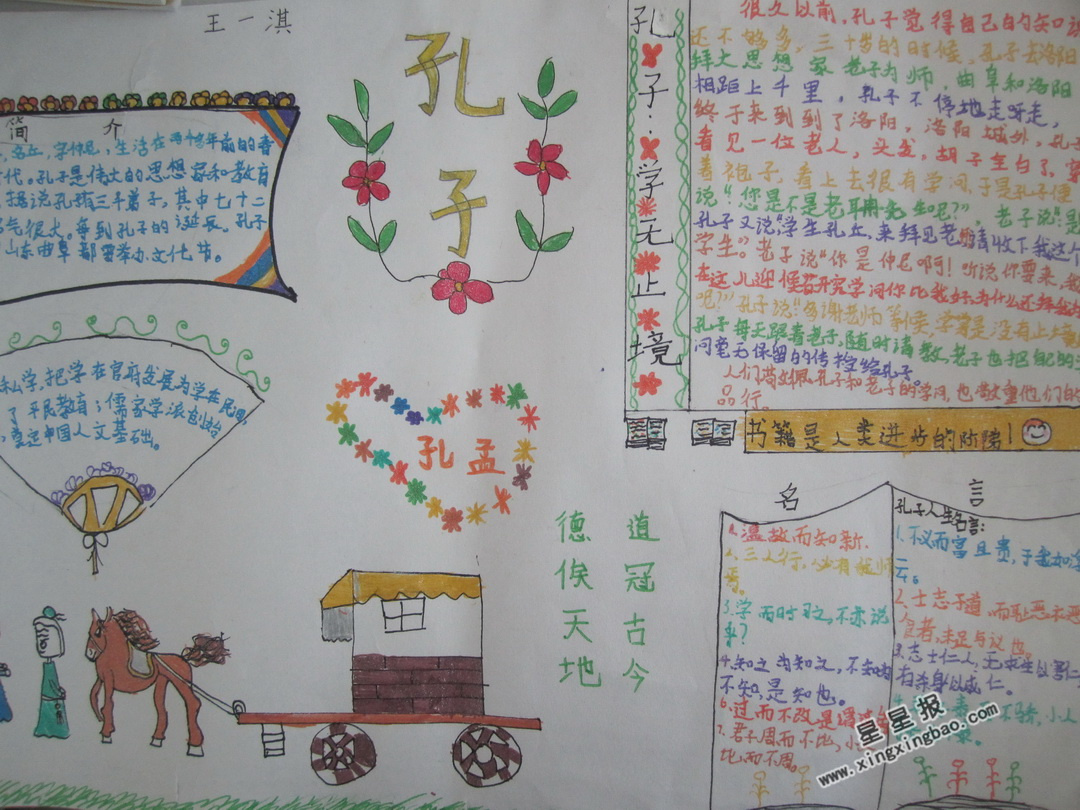 王一淇
孔子
简介
名丘,字仲尼,生活在两千多年前的春
代。孔子是伟大的思想家和教育
据说孔有三千弟子,其中七十二
名气很大。每到孔子的诞辰。孔子
山东曲阜都要举办文化节。
私学,把学在官府发展为学在民间,
了平民教育;儒家学派创始
奠定中国人文基础。
孔孟
道冠古今
德侔天地
孔子:学无止境
很久以前,孔子觉得自己的知识
还不够多,三十岁的时候,孔子去洛阳
拜大思想家老子为师,曲阜和洛阳
相距上千里,孔子不停地走呀走,
终于来到到了洛阳,洛阳城外,孔子
看见一位老人,头发,胡子全白了,穿
着袍子,看上去很有学问,于是孔子便
说“您是不是老聃先生呢?”,老子说:是
孔子又说“学生孔丘,来拜见老师请收下我这个
学生”。老子说“你是仲尼啊!听说你要来,我
在这儿迎候研究学问你比我好,为什么还拜我
呢?”孔子说“多谢老师等候,学习是没有止境
孔子每天跟着老子,随时请教,老子也把自己的学
问毫无保留的传授给孔子。
人们敬佩孔子和老子的学问,也敬重他们的
品行。
书籍是人类进步的阶梯!
名言
1.温故而知新.
2.三人行,必有我师
焉。
3.学而时习之,不亦说
乎?
4.知之为知之,不知为
不知,是知也。
6.过而不改是谓过
7.君子周而不比,小
比而不周。
孔子人生名言:
1.不义而富且贵,于我如浮
云。
2.士志于道,而耻恶衣恶
食者,未足与议也。
3.志士仁人,无求生以害仁
有杀身以成仁。
不骄,小人
星星报
www.xingxingbao.com